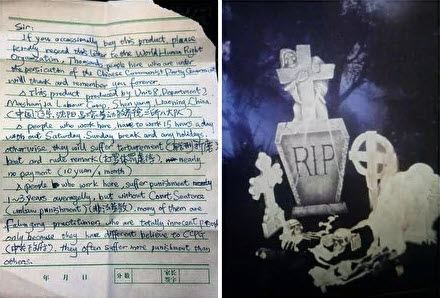 Sir,
If you occassionally buy this product, please
kindly resend this letter to the World Human Right
Organization. Thousands people here who are under
the persicution of the Chinese Communist Party Government
will thank and remember you forever.
This product produced by Unit 8, Department 2,
Masanjia Labour Camp, Shenyang, Liaoning, China.
people who work here, have to work 15 hours a day
with out Saturday, Sunday break and any holidays,
otherwise, they will suffer torturement
beat and rude remark nearly
no payment (10 yuan/1 month)
people who work here, suffer punishment
1~3 years averagelly, but without Court Sentence
(unlaw punishment) many of them are
Falun gong practitioner, who are totally innocent people
only because they have different believe to CCPG
they often suffer more punishment than
others.
年 月 日 分数 家长签字
RIP